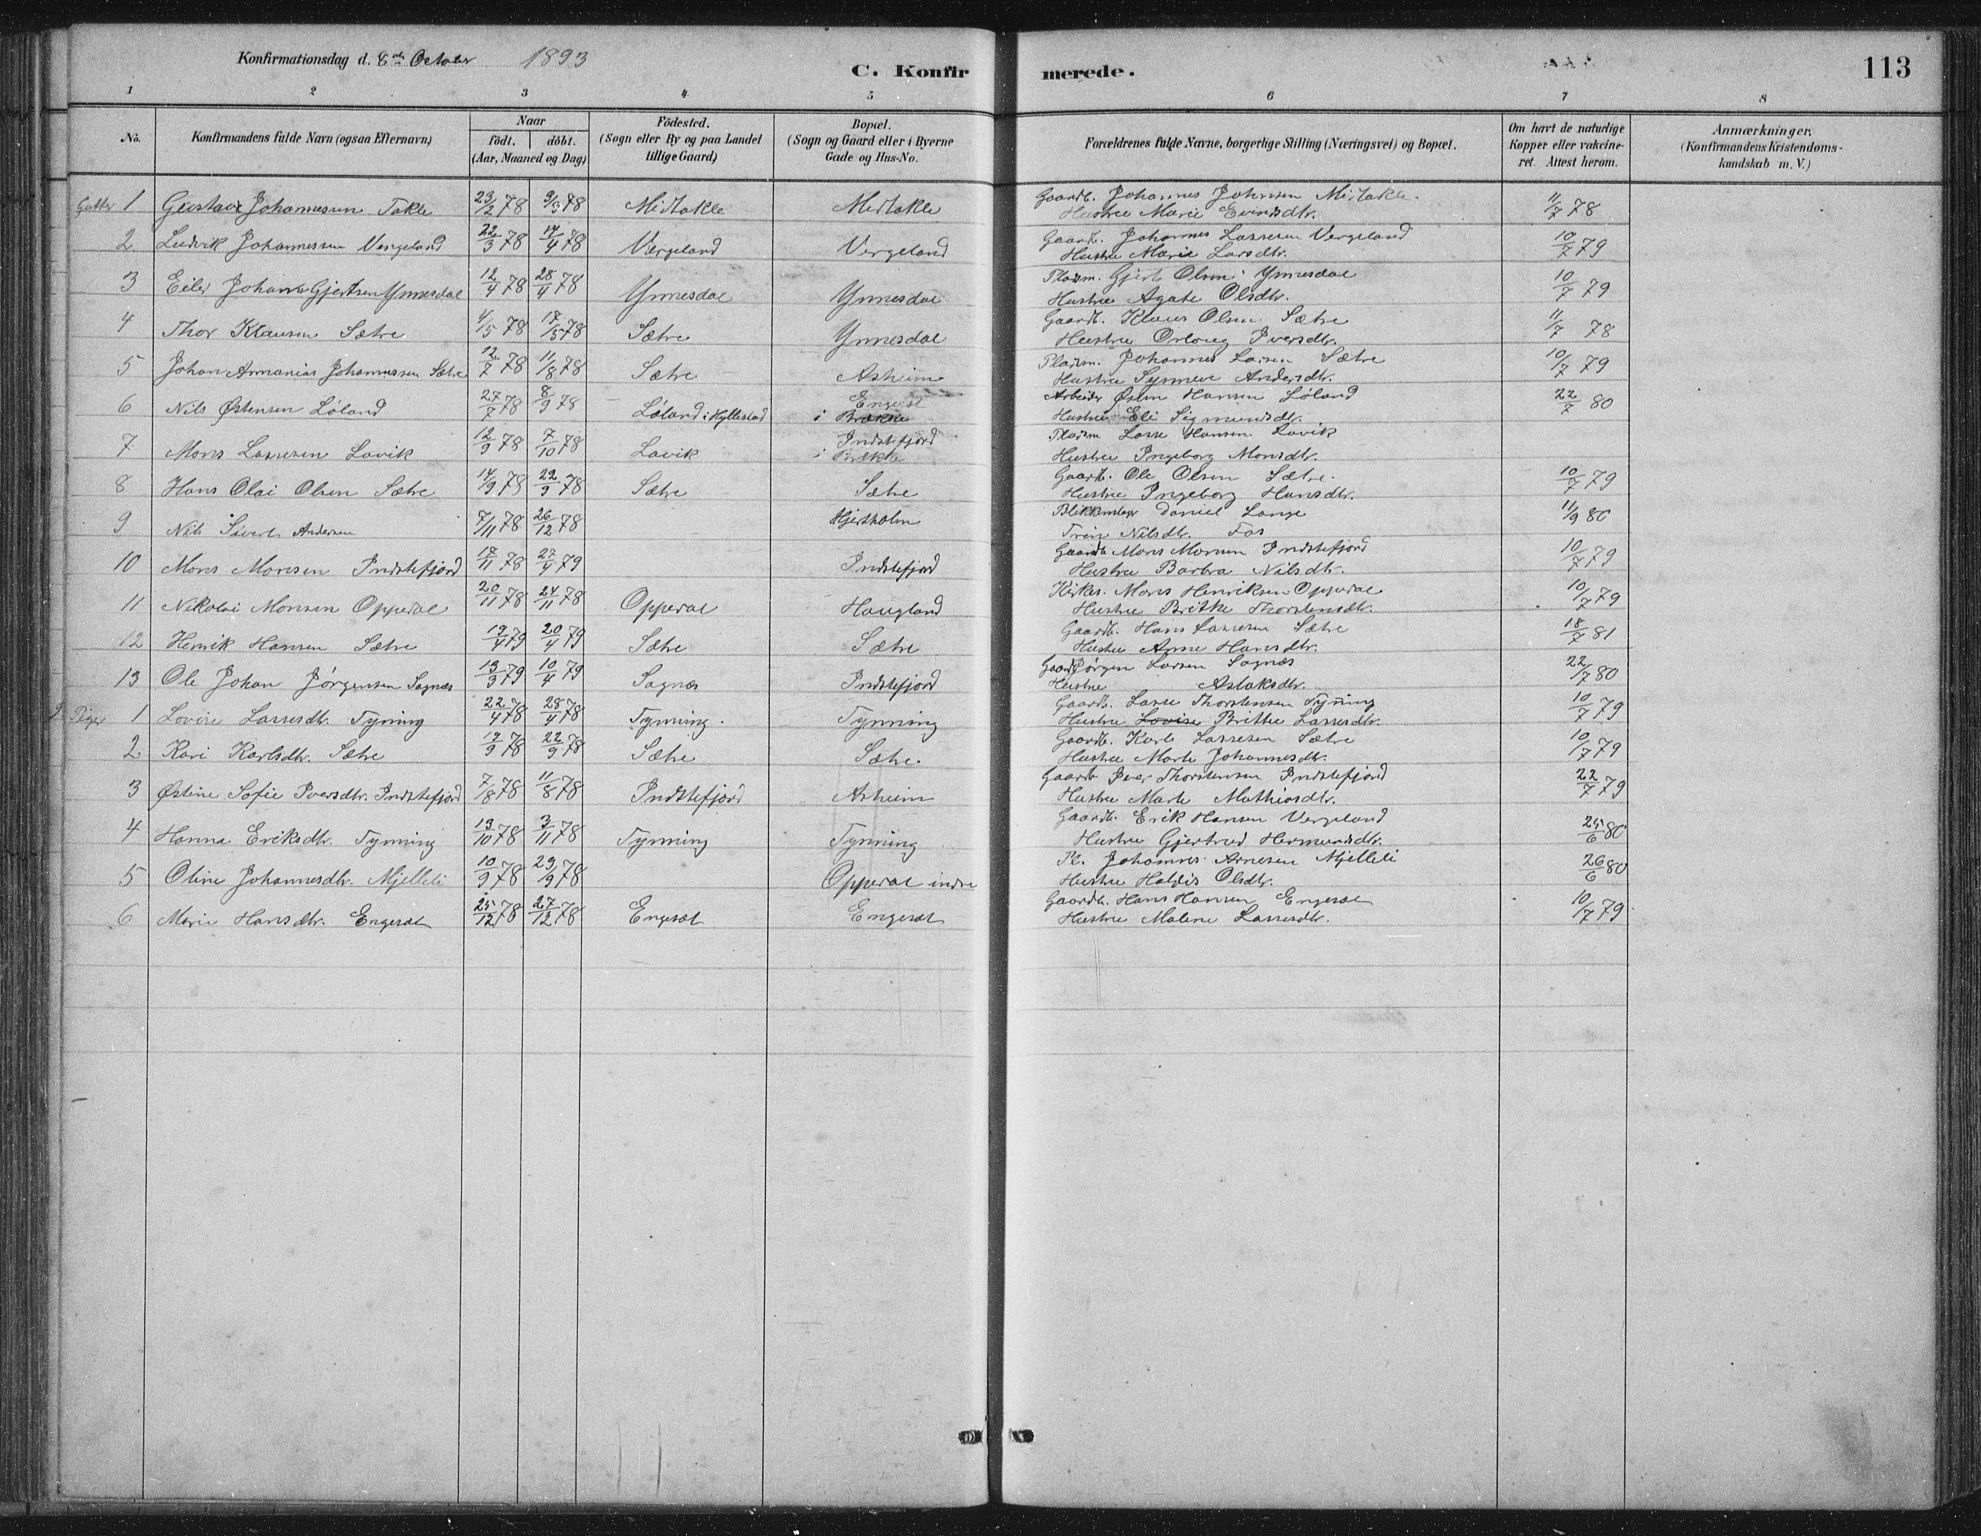 Konfirmationsdag d. 8de October 1893
C. Konfirmerede.
113
1 2 3 4 5 6 7 8
No.
Konfirmandens fulde Navn (ogsaa Efternavn)
Naar
födt. döbt.
(Aar, Maaned og Dag)
Födested.
(Sogn eller By og paa Landet
tillige Gaard)
Bopæl.
(Sogn og Gaard eller i Byerne
Gade og Hus-No.
Forældrenes fulde Navne, borgerlige Stilling (Næringsvei) og Bopæl.
Om havt de naturlige
Kopper eller vakcine-
ret. Attest herom.
Anmærkninger,
(Konfirmandens Kristendoms-
kundskab m. V.)
Gutter 1 Gustav Johannessen Takle 23/2 78 9/3 78 Midtakle Midtakle Gaardb. Johannes Johnsen Midtakle. 11/7 78
Hustru Marie Evindsdtr.
2 Ludvik Johannessen Vergeland 22/3 78 14/4 78 Vergeland Vergeland Gaardb. Johannes Lassesen Vergeland 10/7 79
Hustru Marie Larsdtr.
3 Eiler Johan Gjertsen Ynnesdal 12/4 78 28/4 78 Ynnesdal Ynnesdal Pladsm. Gjert Olsen Ynnesdal 10/7 79
Hustru Agate Olsdtr.
4 Thor Klausen Sætre 4/5 78 17/5 78 Sætre Ynnesdal Gaardb. Klaus Olsen Sætre 11/7 78
Hustru Orloug Iversdtr.
5 Johan Annanias Johannessen Sætre 12/7 78 11/8 78 Sætre Asheim Pladsm. Johannes Larsen Sætre 10/7 79
Hustru Synneve Andersdtr.
6 Nils Østensen Løland 27/7 78 8/9 78 Løland i Hyllestad Engesæt i Brække Arbeider Østen Hansen Løland 22/7 80
Hustru Eli Sigmundsdtr.
7 Mons Lassesen Lavik 12/9 78 7/10 78 Lavik Indstefjord i Brekke Pladsm Lasse Hansen Lavik
Hustru Ingeborg Monsdtr.
8 Hans Olai Olsen Sætre 14/9 78 22/9 78 Sætre Sætre Gaardb. Ole Olsen Sætre. 10/7 79
Hustru Ingeborg Hansdtr.
9 Nils Sivert Andersen 7/11 78 26/12 78 Hjertholm Blikkenslager Daniel Lange 11/9 80
Trine Nilsdtr. Fos
10 Mons Monsen Indstefjord 17/11 78 27/4 79 Indstefjord Gaardb Mons Monsen Indstefjord 10/7 79
Hustru Barbra Nilsdtr.
11 Nikolai Monsen Opperdal 20/11 78 24/11 78 Opperdal Haugland Kirkes. Mons Henriksen Opperdal 10/7 79
Hustru Brithe Thorstensdtr.
12 Henrik Hansen Sætre 19/4 79 20/4 79 Sætre Sætre Gaardb. Hans Lassesen Sætre 18/7 81
Hustru Anne Hansdtr.
13 Ole Johan Jørgensen Sognæs 13/3 79 10/4 79 Sognæs Indstefjord Gaardb Jørgen Larsen Sognæs 22/7 80
Hustru Aslaksdtr.
Piger 1 Lovise Lassesdtr. Tynning 22/4 78 28/4 78 Tynning. Tynning Gaardb. Lasse Thorstensen Tynning 10/7 79
Hustru Lovise Brithe Lassesdtr.
2 Kari Karlsdtr. Sætre 12/9 78 22/9 78 Sætre Sætre. Gaardb. Karl Lassesen Sætre 10/7 79
Hustru Marte Johannesdtr.
3 Østine Sofie Iversdtr. Indstefjord 7/8 78 11/8 78 Indstefjord Asheim Gaardb Iver Thorstensen Indstefjord 22/7 79
Hustru Marte Mathiasdtr.
4 Hanna Eriksdtr. Tynning 13/10 78 3/11 78 Tynning Tynning Gaardb. Erik Hansen Vergeland 25/6 80
Hustru Gjertrud Hermundsdtr.
5 Oline Johannesdtr. Mjelleli 10/9 78 29/9 78 Opperdal indre Pl. Johannes Arnesen Mjelleli 26/6 80
Hustru Haldis Olsdtr.
6 Marie Hansdtr. Engesæt 25/12 78 27/12 78 Engesæt Engesæt Gaardb. Hans Hansen Engesæt 10/7 79
Hustru Malene Lassesdtr.